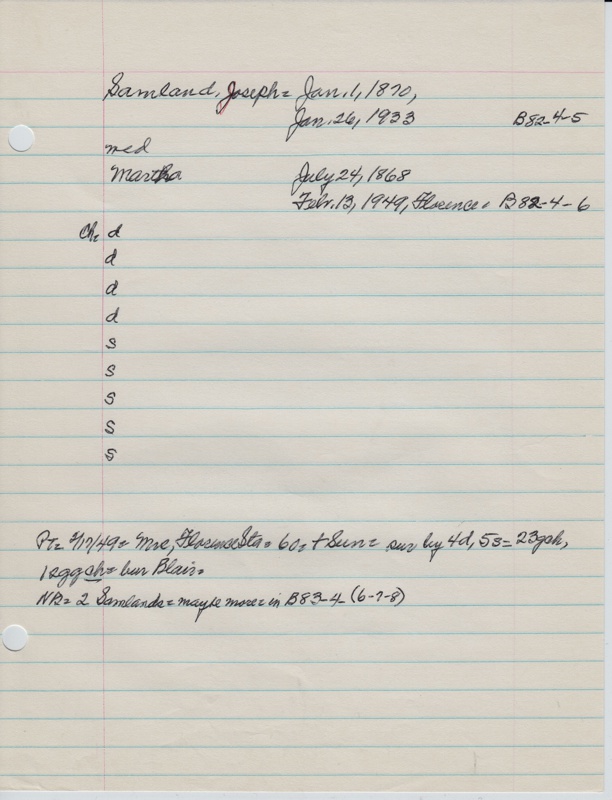 Samland, Joseph = Jan. 1, 1870,
Jan. 26, 1933 B82-4-5
med
Martha July 24, 1868
Febr. 13, 1949, Florence = B82-4-6
Ch = d
d
d
d
s
s
s
s
s
Pt = 2/17/49 = Mrs, Florence Sta = 60 = + Sun = sur by 4d, 5s = 23gch,
12ggch = bur Blair =
NB = 2 Samlands = maybe more = in B83-4-(6-7-8)